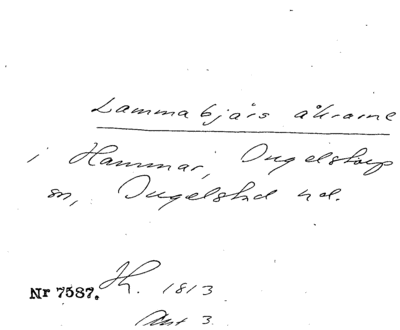 Lammabjärs åkrarne
i Hammar, Ingelstorp
sn, Ingelstad hd.
Nr 7587. Hh. 1813
Akt 3.